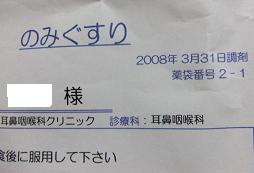 のみぐすり
2008年 3月31日調剤
薬袋番号 2 - 1
様
耳鼻咽喉科クリニック 診療科：耳鼻咽喉科
食後に服用して下さい